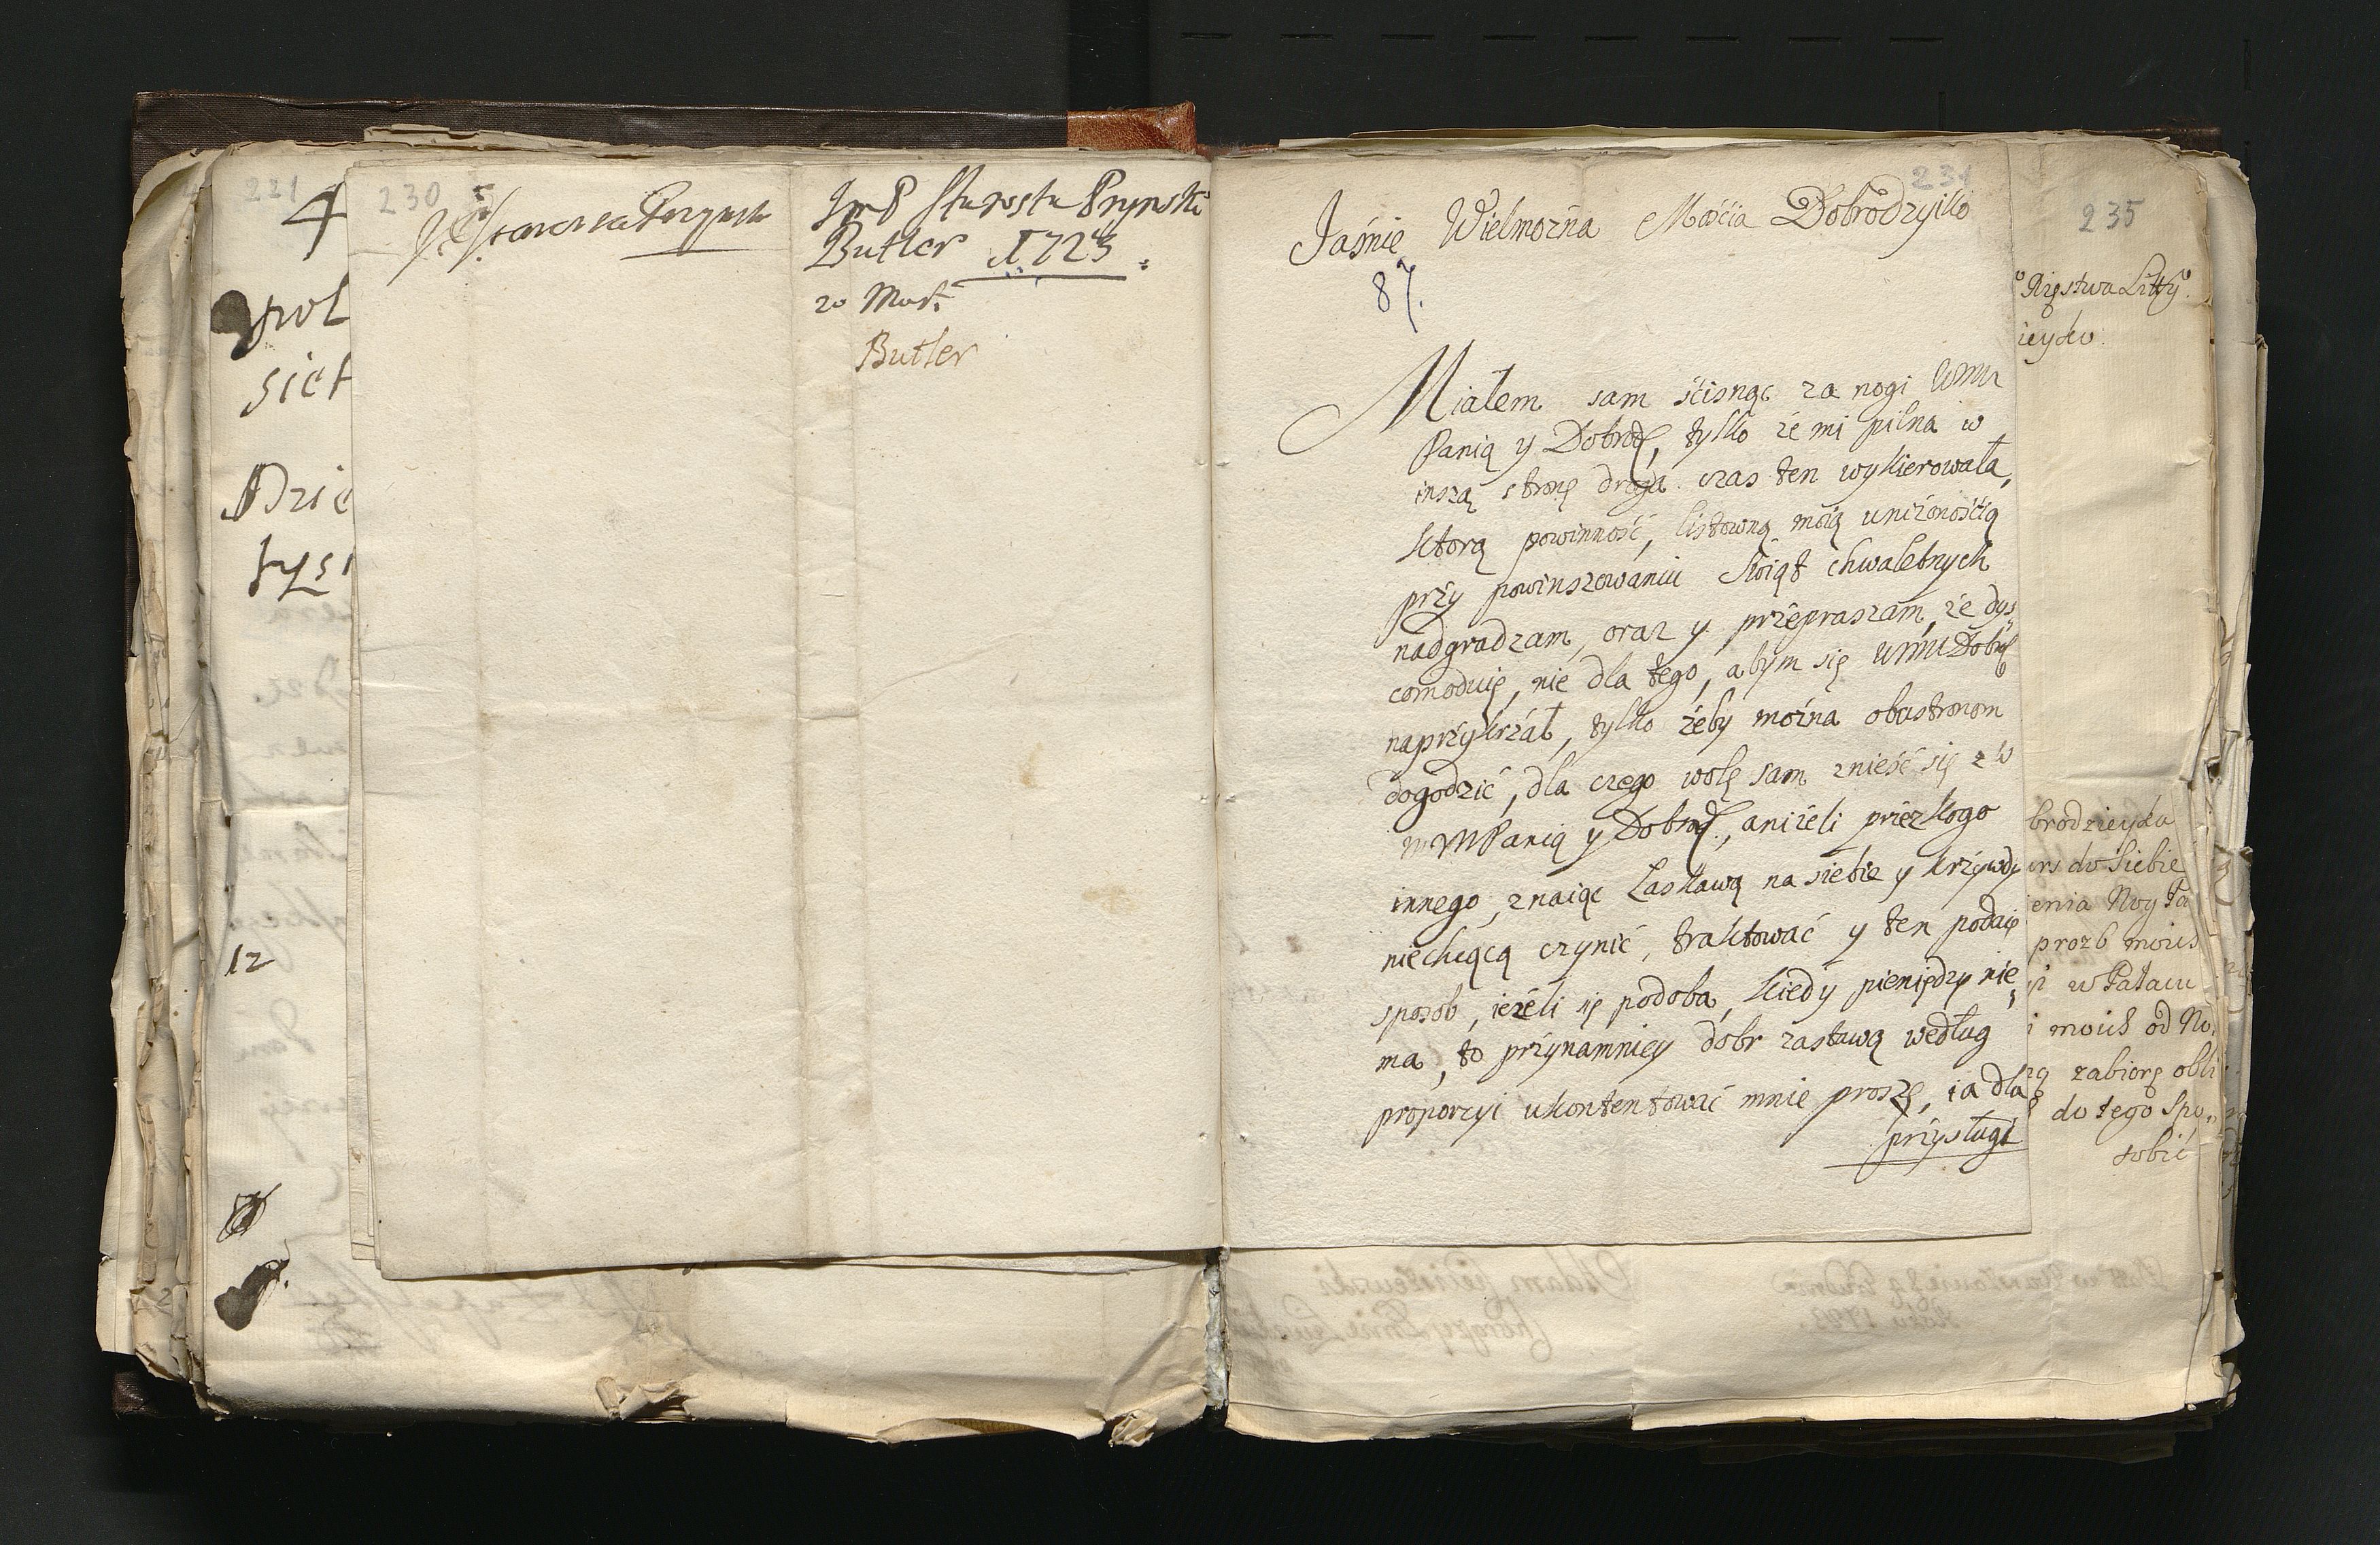 221
4
pol
siet
Dzie
tysi
12
230
JmP Starosta Prynski
Butler 1723
20 Mart.
Butler
231
Jaśnie Wielmożna Mościa Dobrodzyiko
87.
Miałem sam ścisnąc za nogi WMM
Panią y Dobrdz, tylko że mi pilna w
inszą stronę droga czas ten wykierowała,
ktorą powinność, listowną moią uniżonośćią
przy powinszowaniu Swiąt chwalebnych
nadgradzam, oraz y przepraszam, że dys
comoduię, nie dla tego, abym się WMM Dobrdz
naprzykrzał, tylko żeby można obustronom
dogodzić, dla czego wolę sam znieść się z W
MMPanią y Dobrodz., aniżeli przez kogo
innego, znaiąc Łaskawą na siebie y krzywdy
niechcącą czynić, traktować y ten podaię
sposob, ieżeli się podoba, kiedy pieniędzy nie
ma, to przynamniey dobr zastawą według
proporcyi ukontentować mnie proszę, ia dla
przysługi
235
Xięstwa Litty.
ieyko.
brodzieyka
ers do Siebie
enia Noyta
prozb moich
w Pałacu
i moich od No
zabiorę obli
do tego Spo
sobić